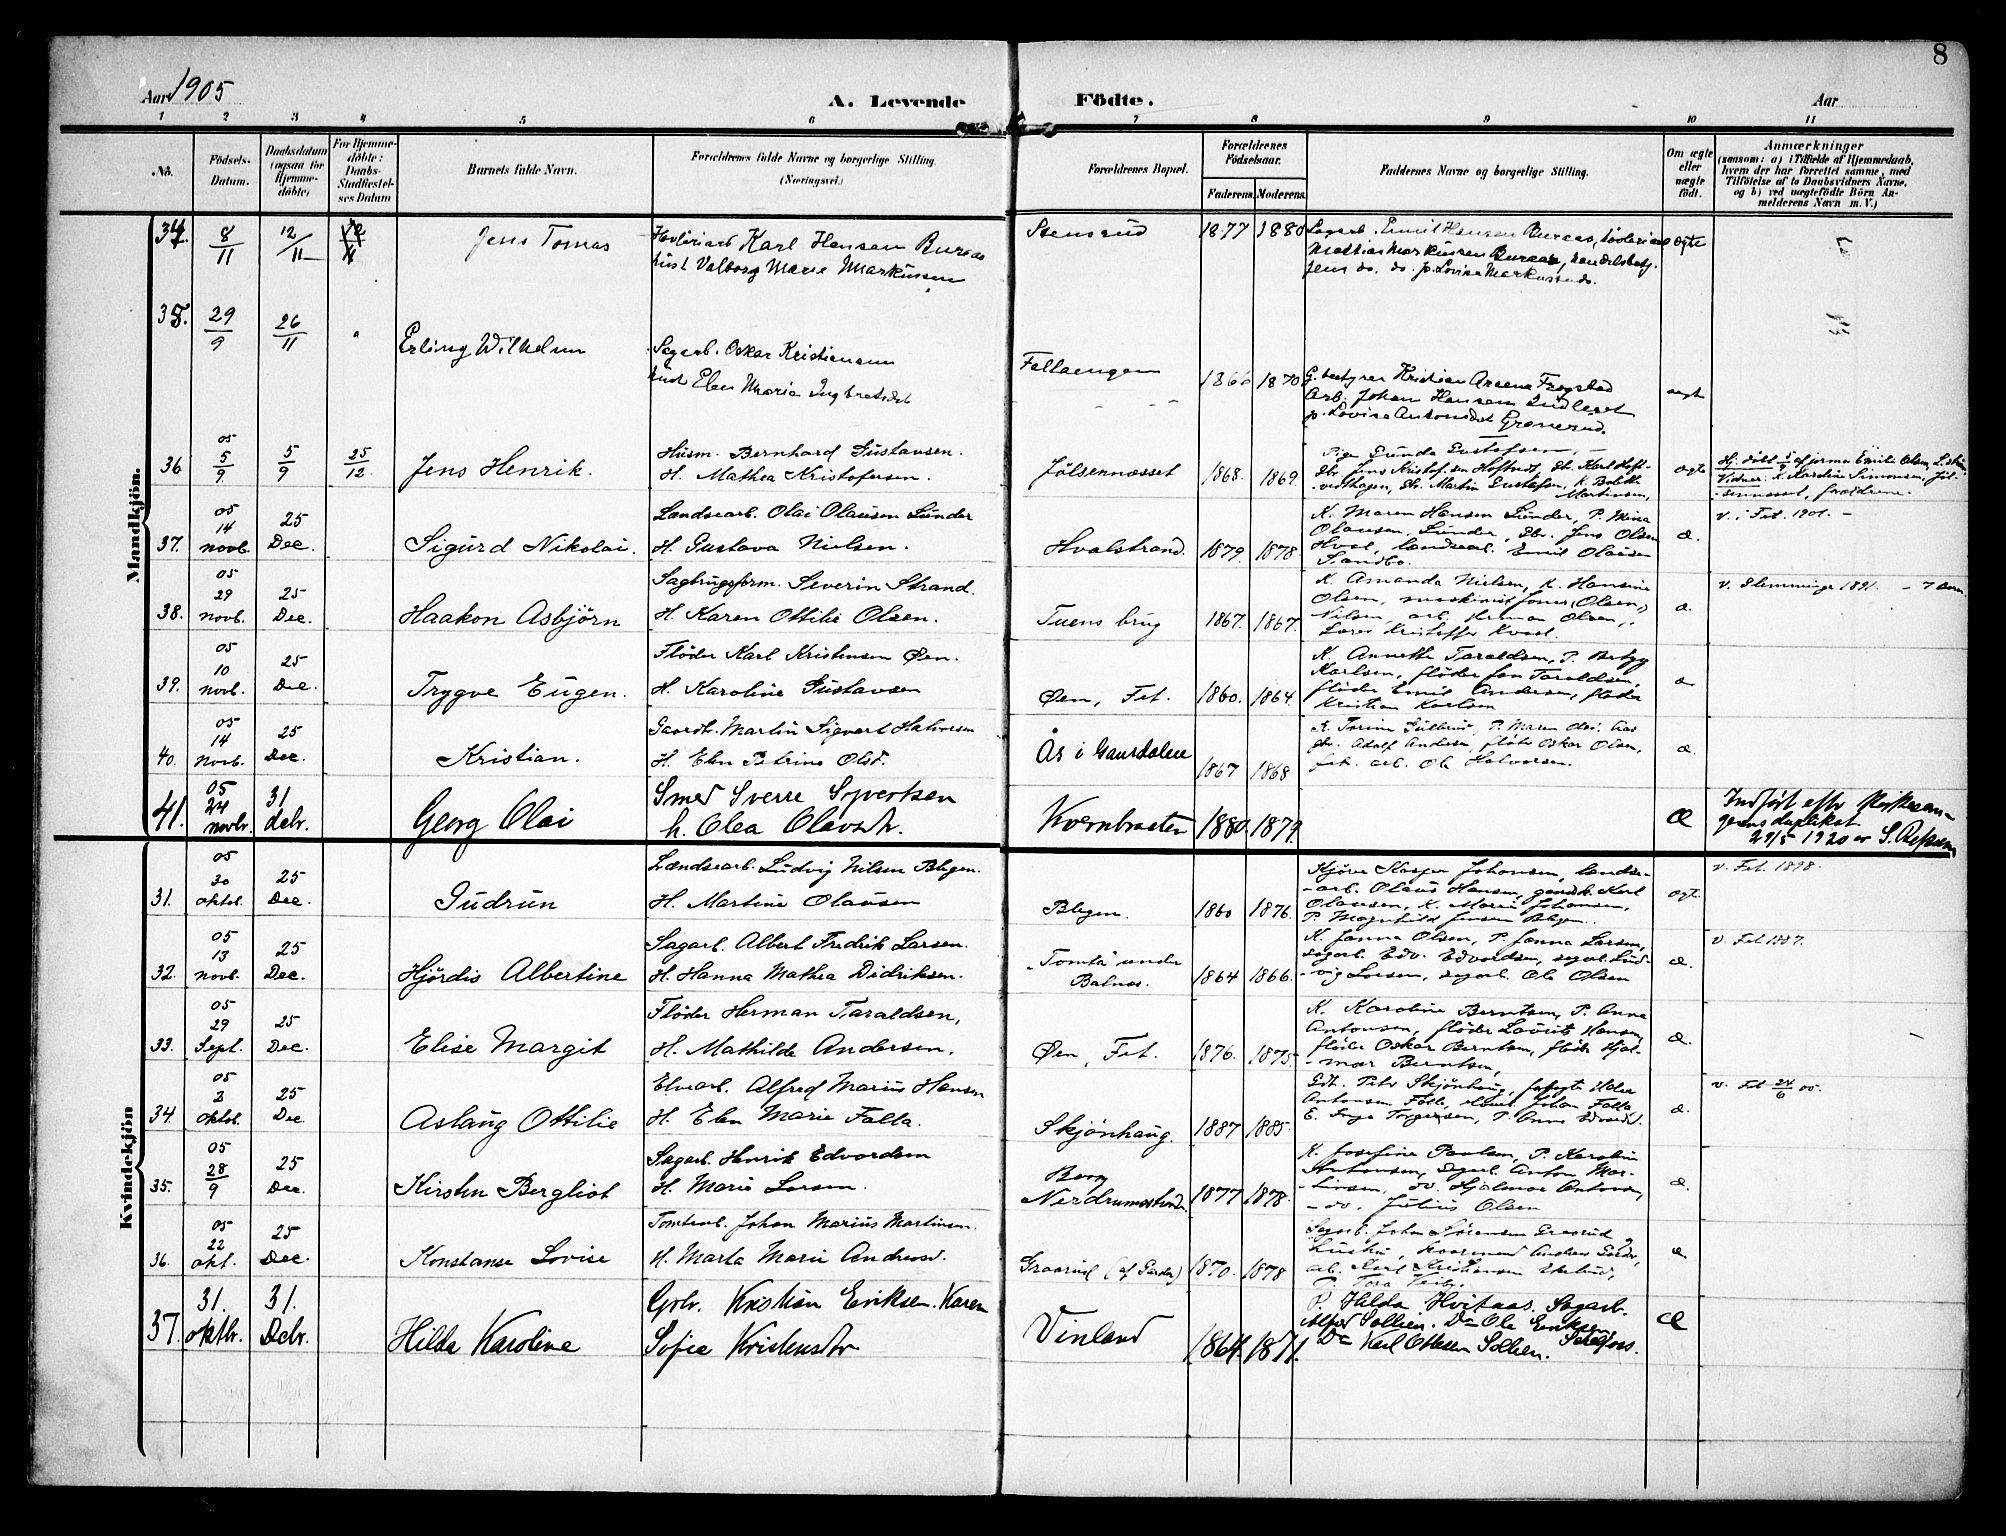 8
Aar 1905
A. Levende Födte.
Aar
1 2 3 4 5 6 7 8 9 10 11
No.
Födsels-Datum.
Daabsdatum (ogsaa for Hjemme-döbte)
For Hjemme-döbte: Daabs-Stadfæstel-ses Datum
Barnets fulde Navn.
Forældrenes fulde Navne og borgerlige Stilling. (Næringsvei.)
Forældrenes Bopæl.
Forældrenes Födselsaar.
Faderens. Moderens.
Faddernes Navne og borgerlige Stilling.
Om ægte eller uægte födt.
Anmærkninger
(saasom: a) i Tilfælde af Hjemmedaab, hvem der har forrettet samme, med Tilföielse af to Daabsvidners Navne, og b) ved uægtefödte Börn An-melderens Navn m. V.)
Mandkjön.
34. 8/11 12/11 Jens Tomas
Karl Hansen Buraas
hust Valborg Marie Markussen
Stensrud 1877 1880
Sagarb. Emil Hansen Buraas,
Mathias Markussen Buraas,
Jens do. do. p. Lovise Markussen do.
ægte
35. 29/9 26/11 " Erling Wilhelm
Sagarb. Oskar Kristiansen
hust Elen Maria Ingbretsdat
Fallaengen 1866 1870
G.bestyrer Kristian Frogstad
Arb. Johan Hansen
p. Lovise Antonsdat Grønerud.
ægt
36 05 5/9 5/9 25/12 Jens Henrik.
Husm. Bernhard Gustavsen.
H. Mathea Kristofersen.
Jølsennæsset 1868. 1869.
Pige Gunda Gustafsen,
Gbr. Jens Kristofersen Karl
Gbr. Martin Gustafsen, K. Bolette Martinsen,
ægte
Hj. döbt 5/9 af jormo Emilie Olsen,
Vidner: K. Karoline Simonsen, Jöl-
sennæsset, forældrene.
37. 05 14 novb. 25 Dec. Sigurd Nikolai.
Lændsearb. Olai Olausen Sunder
H. Gustava Nielsen.
Hvalstrand. 1879. 1878
K. Maren Hansen Sunder, P. Mina
Olausen, Sunder, Gbr. Jens Olsen
Hval, landsearb. Emil Olausen
Sandbo.
æ.
v. i Fet. 1901. -
38. 05 29 novb. 25 Dec. Haakon Asbjörn
Sagbrugsform. Severin Strand.
H. Karen Ottilie Olsen.
Tuens brug 1867. 1867.
K. Amanda Nielsen, K. Hansine
Olsen, maskinist Olsen,
Nilsen, arb. Herman Olsen,
Lars Kristoffer Kvast.
æ.
v. Slemminge 1891. - 7
39. 05 10 novb. 25 Dec. Trygve Eugen.
Flöder Karl Kristensen Øen.
H. Karoline Gustavsen
Øen, Fet. 1860. 1864.
K. Annette Taraldsen, P. Betzy
Karlsen, flöder Jan Taraldsen,
flöder Emil Andersen, flöder
Kristian Karlsen
æ
40. 05 14 Novb. 25 Dec. Kristian.
Gaardb. Martin Sigvart Halvorsen
H. Elen Petrine Olsd.
Ås i Gansdalen 1867 1868
K. Torine Gulbrud, P. Maren Olsd. Aas
gbr. Adolf Andersen, fløder Oskar Olsen,
arb. Ole Halvorsen.
æ.
41. 05 24 novbr. 31 debr. Georg Olai
Smed Sverre Syvertsen
h. Olea Olavsdr.
Kvernbraaten 1880. 1879.
Æ
Indført efter Kirkesan-
gerens duplikat
29/5 1920
Kvindekjön
31. 05 30 oktob. 25 Dec. Gudrun
Lændsearb. Ludvig Nilsen Blegen.
H. Martine Olausen
Blegen. 1860 1876.
Kjører Kasper Johansen, landse-
-arb. Olaus Hansen, Karl
Olausen, K. Marie Johansen,
P. Magnhild Jensen Blegen.
ægt.
v. Fet. 1898.
32. 05 13 novb. 25 Dec. Hjørdis Albertine
Sagarb. Albert Fredrik Larsen.
H. Hanna Mathea Didriksen.
"Tomta" under Balnes. 1864 1866.
K. Janna Olsen, P. Janna Larsen,
sagarb. Edv. Edvardsen, sagarb. Lud-
-vig Larsen, sagarb. Ole Olsen
æ.
v. Fet 1887.
33. 05 29 Sept. 25 Dec. Elise Margit
Flöder Herman Taraldsen,
H. Mathilde Andersen.
Øen, Fet. 1876. 1875.
K. Karoline Berntsen, P. Anna
Antonsen, flöder Laurits Hansen,
flöder Oskar Berntsen, flöder Hjal-
-mar Berntsen,
æ.
34. 05 2 oktob. 25 Dec. Aslaug Ottilie
Elvearb. Alfred Marius Hansen
H. Elen Marie Falla.
Skjønhaug. 1887 1885.
Gdb. Peter Skjønhaug,
Antonsen Johan Falla
E. Inga Torgersen, P. Anna Edvards.
æ.
v. Fet 24/6 05.
35. 05 28/9 25 Dec. Kirsten Bergliot
Sagarb. Henrik Edvardsen
H. Marie Larsen.
Berg
Nerdrumsstranda 1877 1878.
K. Josefine Paulsen, P. Karoline
Antonsen, sagarb. Anton Mar-
-tinsen, do. Hjalmar Antonsen,
-do. Julius Olsen
æ.
36. 05 22 okt. 25 Dec. Konstanse Lovise
Tomtearb. Johan Marius Martinsen.
H. Marta Marie Andreasd.
Graarud (af Garder) 1870. 1878
Sagarb. Johan Sørensen Graarud
hustru, Andreas
arb. Karl Kristiansen
P. Tora
æ
37. 31. oktbr. 31. Dcbr. Hilda Karoline
Grbr. Kristian Eriksen. Karen
Sofie Kristensdtr
Vinland 1864. 1871.
P. Hilda Hvitaas. Sagarb.
Alfred Sollien. Do Ole Eriksen
Do Karl Ottesen Sollien.
Æ